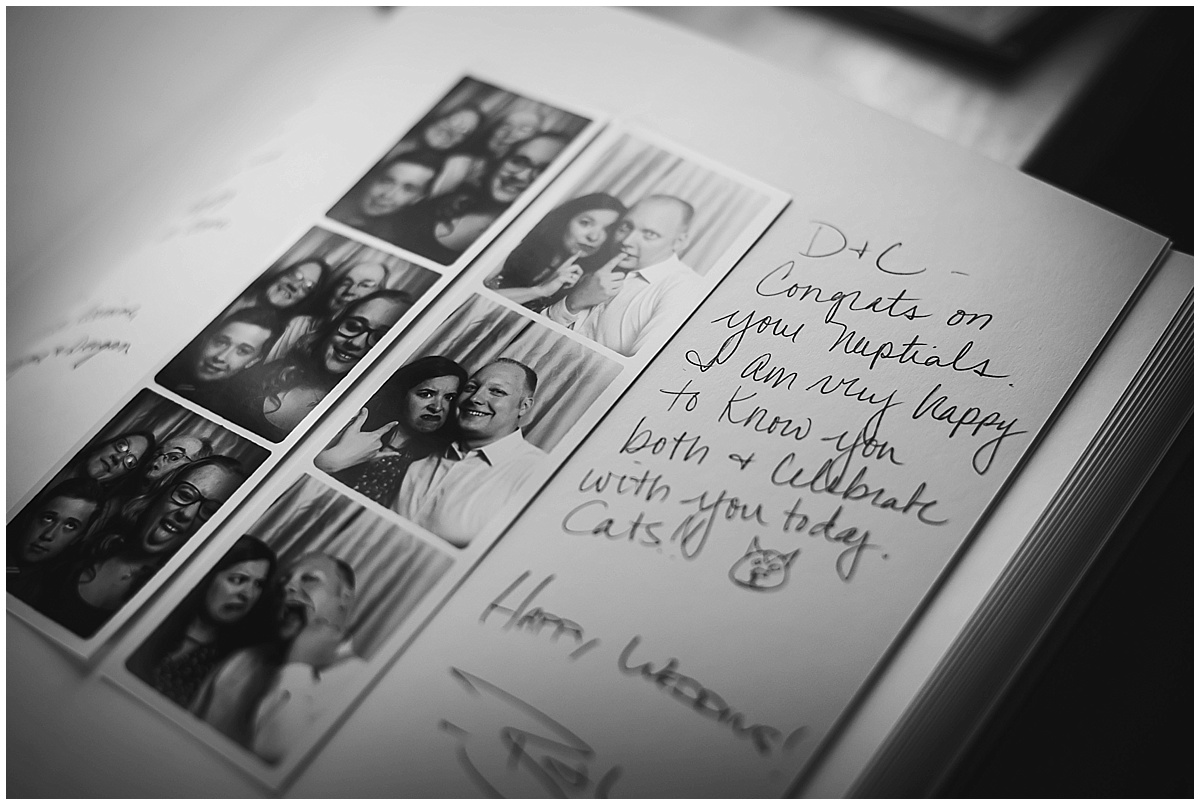 D + C -
Congrats on
your Nuptials.
I am very happy
to know you
both + Celebrate
with you today.
Cats!!
Happy Wedding!